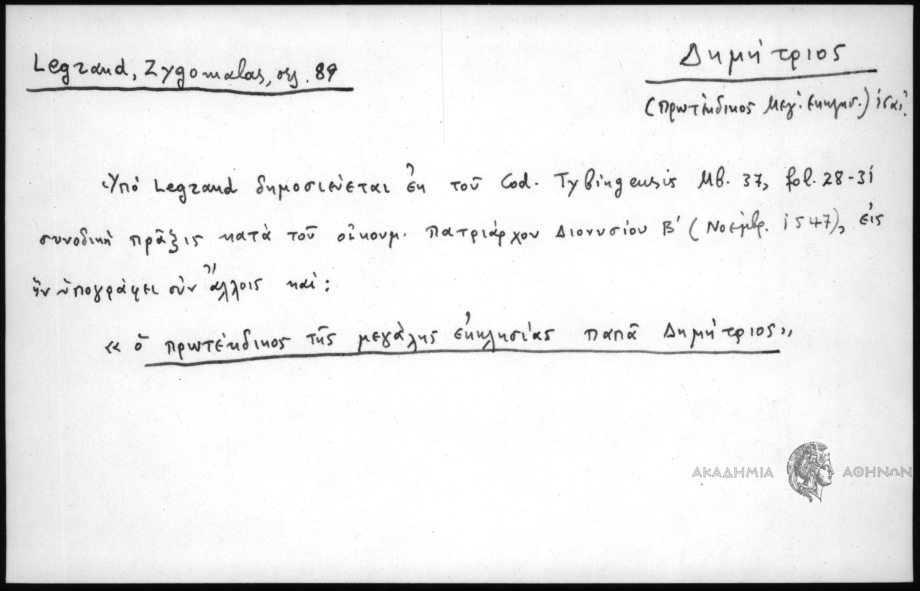 Legrand, Zygomalas, σελ. 89
Δημήτριος
(Πρωτέκδικος Μεγ. Εκκλησ.) ις' αι.
Ὑπό Legrand δημοσιεύεται ἐκ τοῦ Cod. Tybingensis Mb. 37, fol. 28-31
συνοδική πρᾶξις κατά τοῦ οἰκουμ. Πατριάρχου Διονυσίου Β' (Νοέμβρ. 1547), εἰς
ἥν ὑπογράφει σύν ἄλλοις καί:
«ὁ πρωτέκδικος τῆς μεγάλης ἐκκλησίας παπᾶ Δημήτριος»
ΑΚΑΔΗΜΙΑ ΑΘΗΝΩΝ